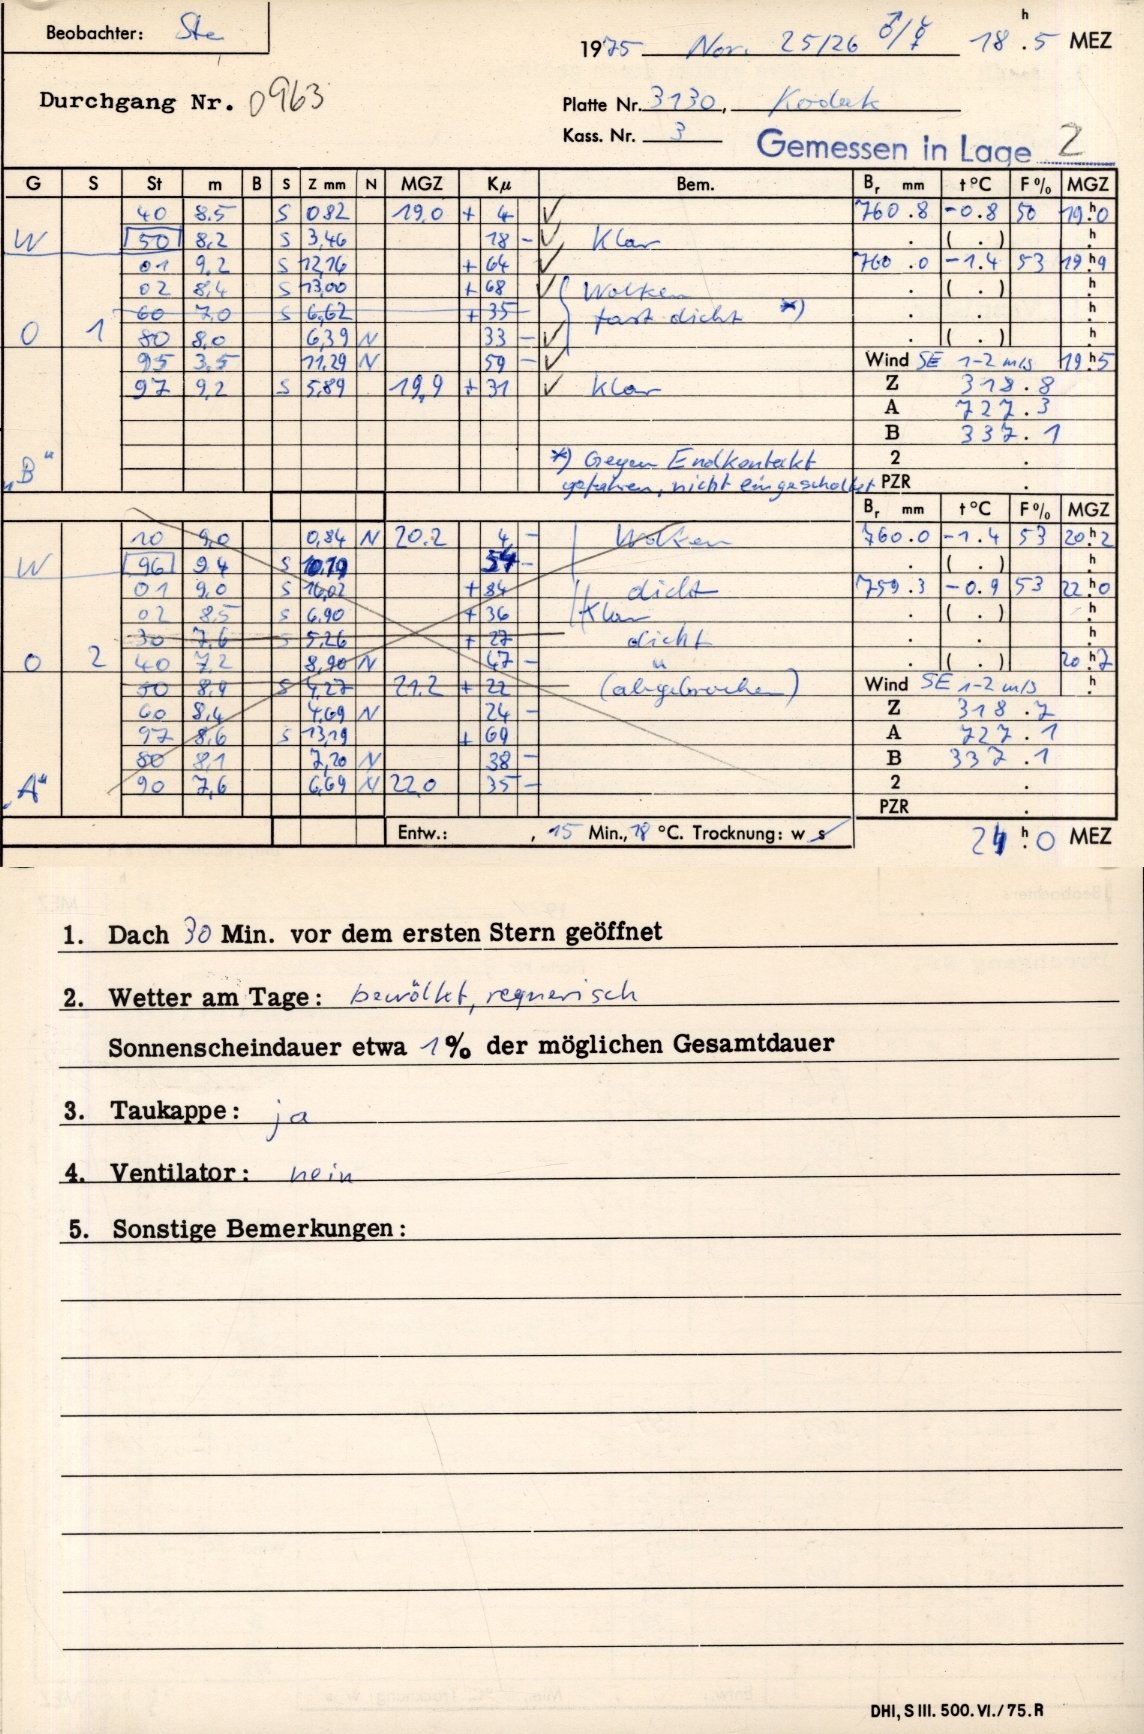 Beobachter: Ste
1975 Nov. 25/26 ♂/☿ 18 h . 5 MEZ
Durchgang Nr. 0963
Platte Nr. 3130, Kodak
Kass. Nr. 3
Gemessen in Lage 2
G S St m B S Z mm N MGZ Kμ Bem. Br mm t°C F% MGZ
40 8,5 S 0,82 19,0 + 4 ✓ 760.8 -0.8 50 19 h 0
W 50 8,2 S 3,46 18 - ✓ Klar . ( . ) h .
01 9,2 S 12,16 + 64 ✓ 760.0 -1.4 53 19 h 9
02 8,4 S 13,00 + 68 ✓ Wolken . ( . ) h .
60 7,0 S 6,62 + 35 fast dicht *) . . h .
O 1 80 8,0 6,39 N 33 - ✓ . ( . ) h .
95 3,5 11,29 N 59 - ✓ Wind SE 1-2 m/s 19 h 5
97 9,2 S 5,89 19,9 + 31 ✓ Klar Z 318.8
A 727.3
B 337.1
"B" *) Gegen Endkontakt 2 .
gefahren, nicht eingeschaltet PZR .
Br mm t°C F% MGZ
10 9,0 0,84 N 20.2 4 - Wolken 760.0 -1.4 53 20 h 2
W 96 9,4 S 10,19 54 - . ( . ) h
01 9,0 S 16,02 + 84 dicht 759.3 -0.9 53 22 h 0
02 8,5 S 6,90 + 36 Klar . ( . ) h .
30 7,6 S 5,26 + 27 dicht . . h .
O 2 40 7,2 8,90 N 47 - " . ( . ) 20 h 7
50 8,9 S 4,27 21.2 + 22 (abgebrochen) Wind SE 1-2 m/s h .
60 8,4 4,69 N 24 - Z 318.7
97 8,6 S 13,19 + 69 A 727.1
80 8,1 7,20 N 38 - B 337.1
"A" 90 7,6 6,69 N 22,0 35 - 2 .
PZR .
Entw.: , 15 Min., 18 °C. Trocknung: w s
24 h . 0 MEZ
1. Dach 30 Min. vor dem ersten Stern geöffnet
2. Wetter am Tage: bewölkt, regnerisch
Sonnenscheindauer etwa 1% der möglichen Gesamtdauer
3. Taukappe: ja
4. Ventilator: nein
5. Sonstige Bemerkungen:
DHI, S III. 500. VI./75. R